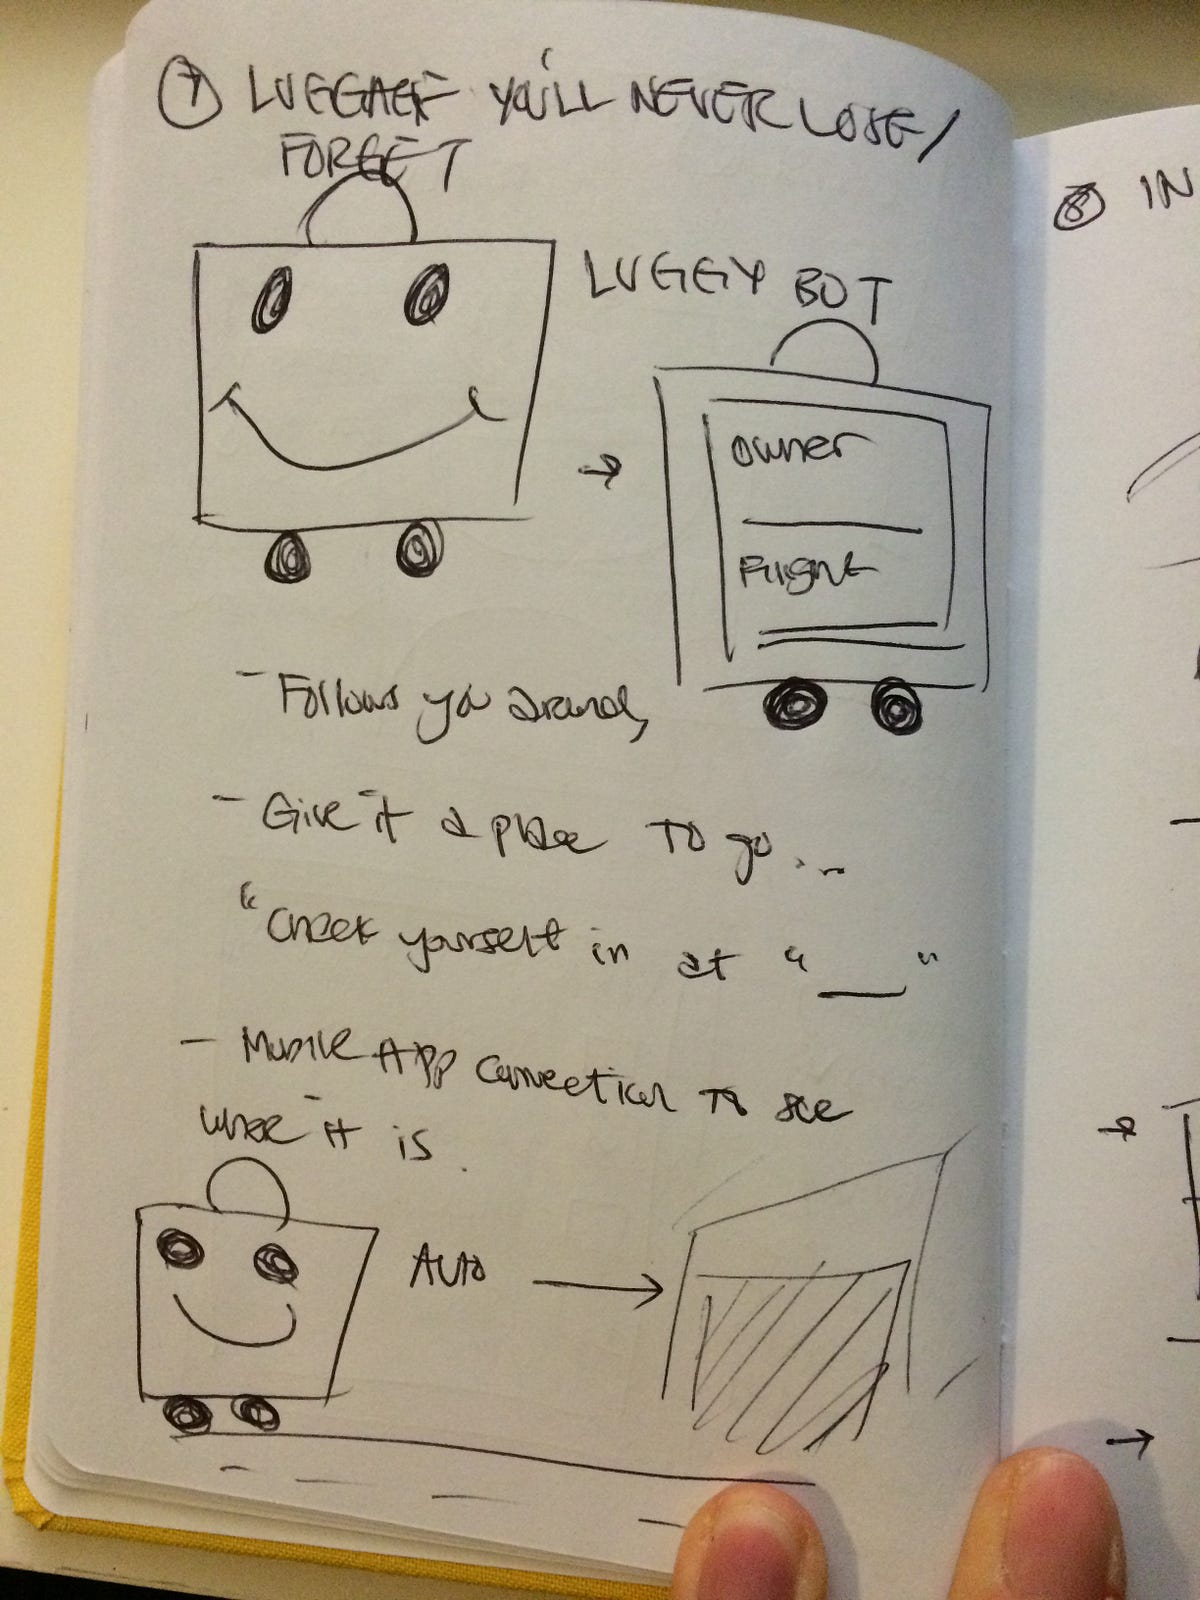 ⑦ LUGGAGE YOU'LL NEVER LOSE/
FORGET
LUGGY BOT
→
owner
Flight
- Follows you around,
- Give it a place to go...
"Check yourself in at "___"
- Mobile App connection to see
where it is.
Auto →
⑧ IN
→
→